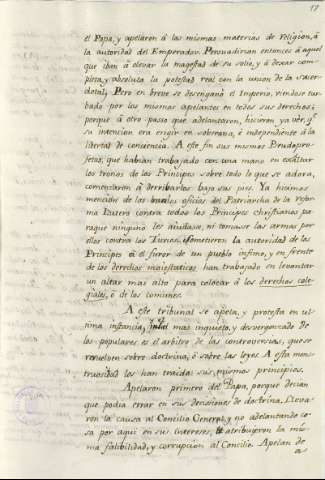 17
el Papa, y apelaron á las mismas materias de Religion, á
la autoridad del Emperador. Persuadiran entonces á aquel
que iban á elevar la magestad de su solio, y á dexar com-
pleta, y absoluta la potestad real con la union de la sacer-
dotal; Pero en breve se desengañó el Imperio, viendose tur-
bado por los mismos apelantes en todos sus derechos;
porque á otro paso que adelantaron, hicieron ya vér, qe
su intencion era erigir en soberana, é independiente á la
libertad de conciencia. A este fin sus mismos Pseudopro-
fetas, que habian trabajado con una mano en exâltar
los tronos de los Principes sobre todo lo que se adora,
comenzaron á derribarlos baxo sus pies. Ya hicimos
mencion de los oficios del Patriarcha de la refor-
ma Lutero contra todos los Principes christianos pa-
raque ninguno les auxiliase, ni tomase las armas por
ellos contra los Turcos. Sometieron la autoridad de los
Principes á el furor de un pueblo infimo, y en frente
de los derechos maiestaticos han trabajado en levantar
un altar mas alto para colocar á los derechos cole-
giales, ó de los comunes.
A este tribunal se apela, y protesta en ul-
tima instancia, mas inquieto, y desvergonzado de
los populares es el arbitro de las controversias, que se
revuelven sobre doctrina, ó sobre las leyes. A esta mons-
truosidad los han traido sus mismos principios.
Apelaron primero del Papa, porque decian
que podia errar en sus decisiones de doctrina. Lleva-
ron la causa al Concilio General, y no adelantando co-
sa por aqui en sus intereses, atribuyeron la mis-
ma falibilidad, y corrupcion al Concilio. Apelan de